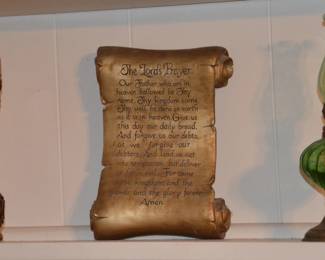 The Lord's Prayer
Our Father who art in
heaven, hallowed be Thy
name. Thy kingdom come,
Thy will be done on earth
as it is in heaven. Give us
this day our daily bread.
And forgive us our debts,
as we forgive our
debtors. And lead us not
into temptation but deliver
us from evil. For thine
is the kingdom and the
power and the glory forever.
Amen.